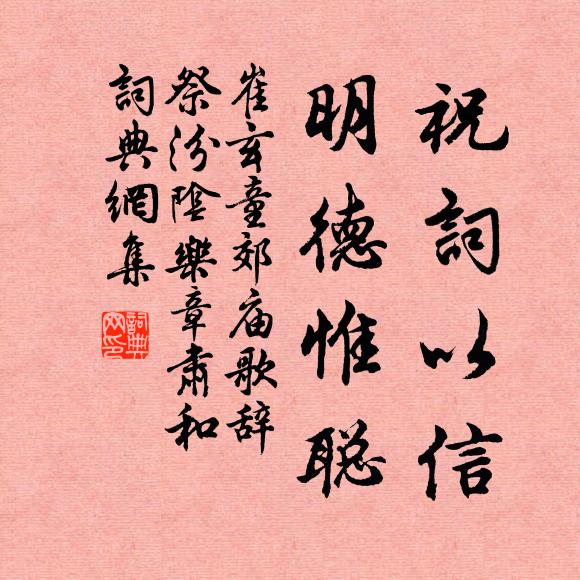 祝詞以信
明德惟聪
崔玄童郊庙歌辞
祭汾陰樂章肃和
詞典網集
詞典
网印